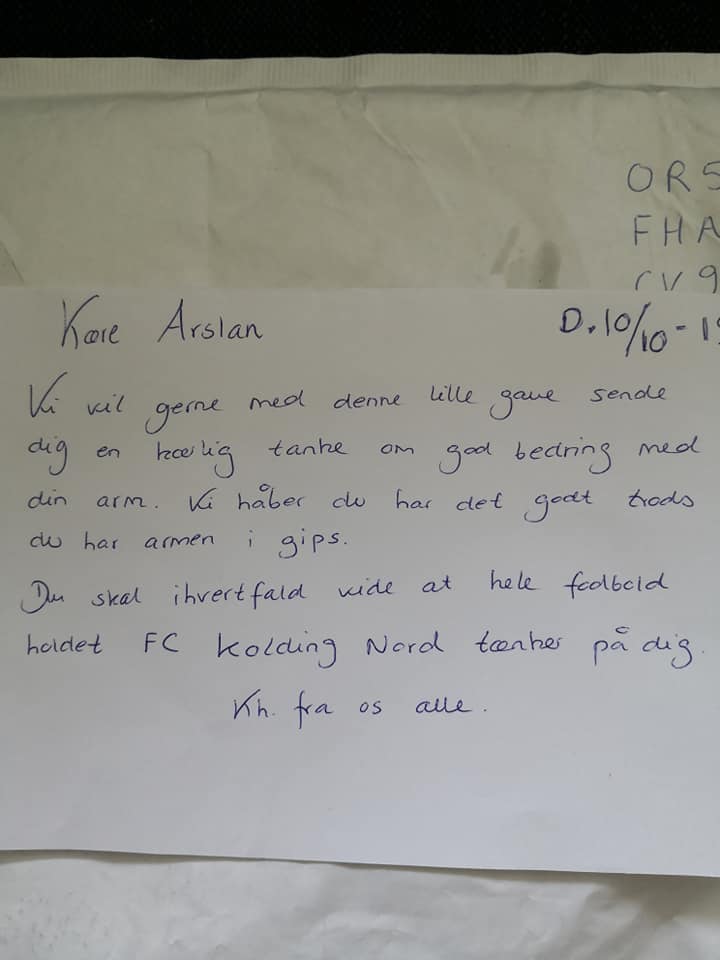 ORS
FHA
Kære Arslan
D. 10/10-19
Vi vil gerne med denne lille gave sende
dig en kærlig tanke om god bedring med
din arm. Vi håber du har det godt trods
du har armen i gips.
Du skal ihvertfald vide at hele fodbold
holdet FC Kolding Nord tænker på dig.
Kh. fra os alle.